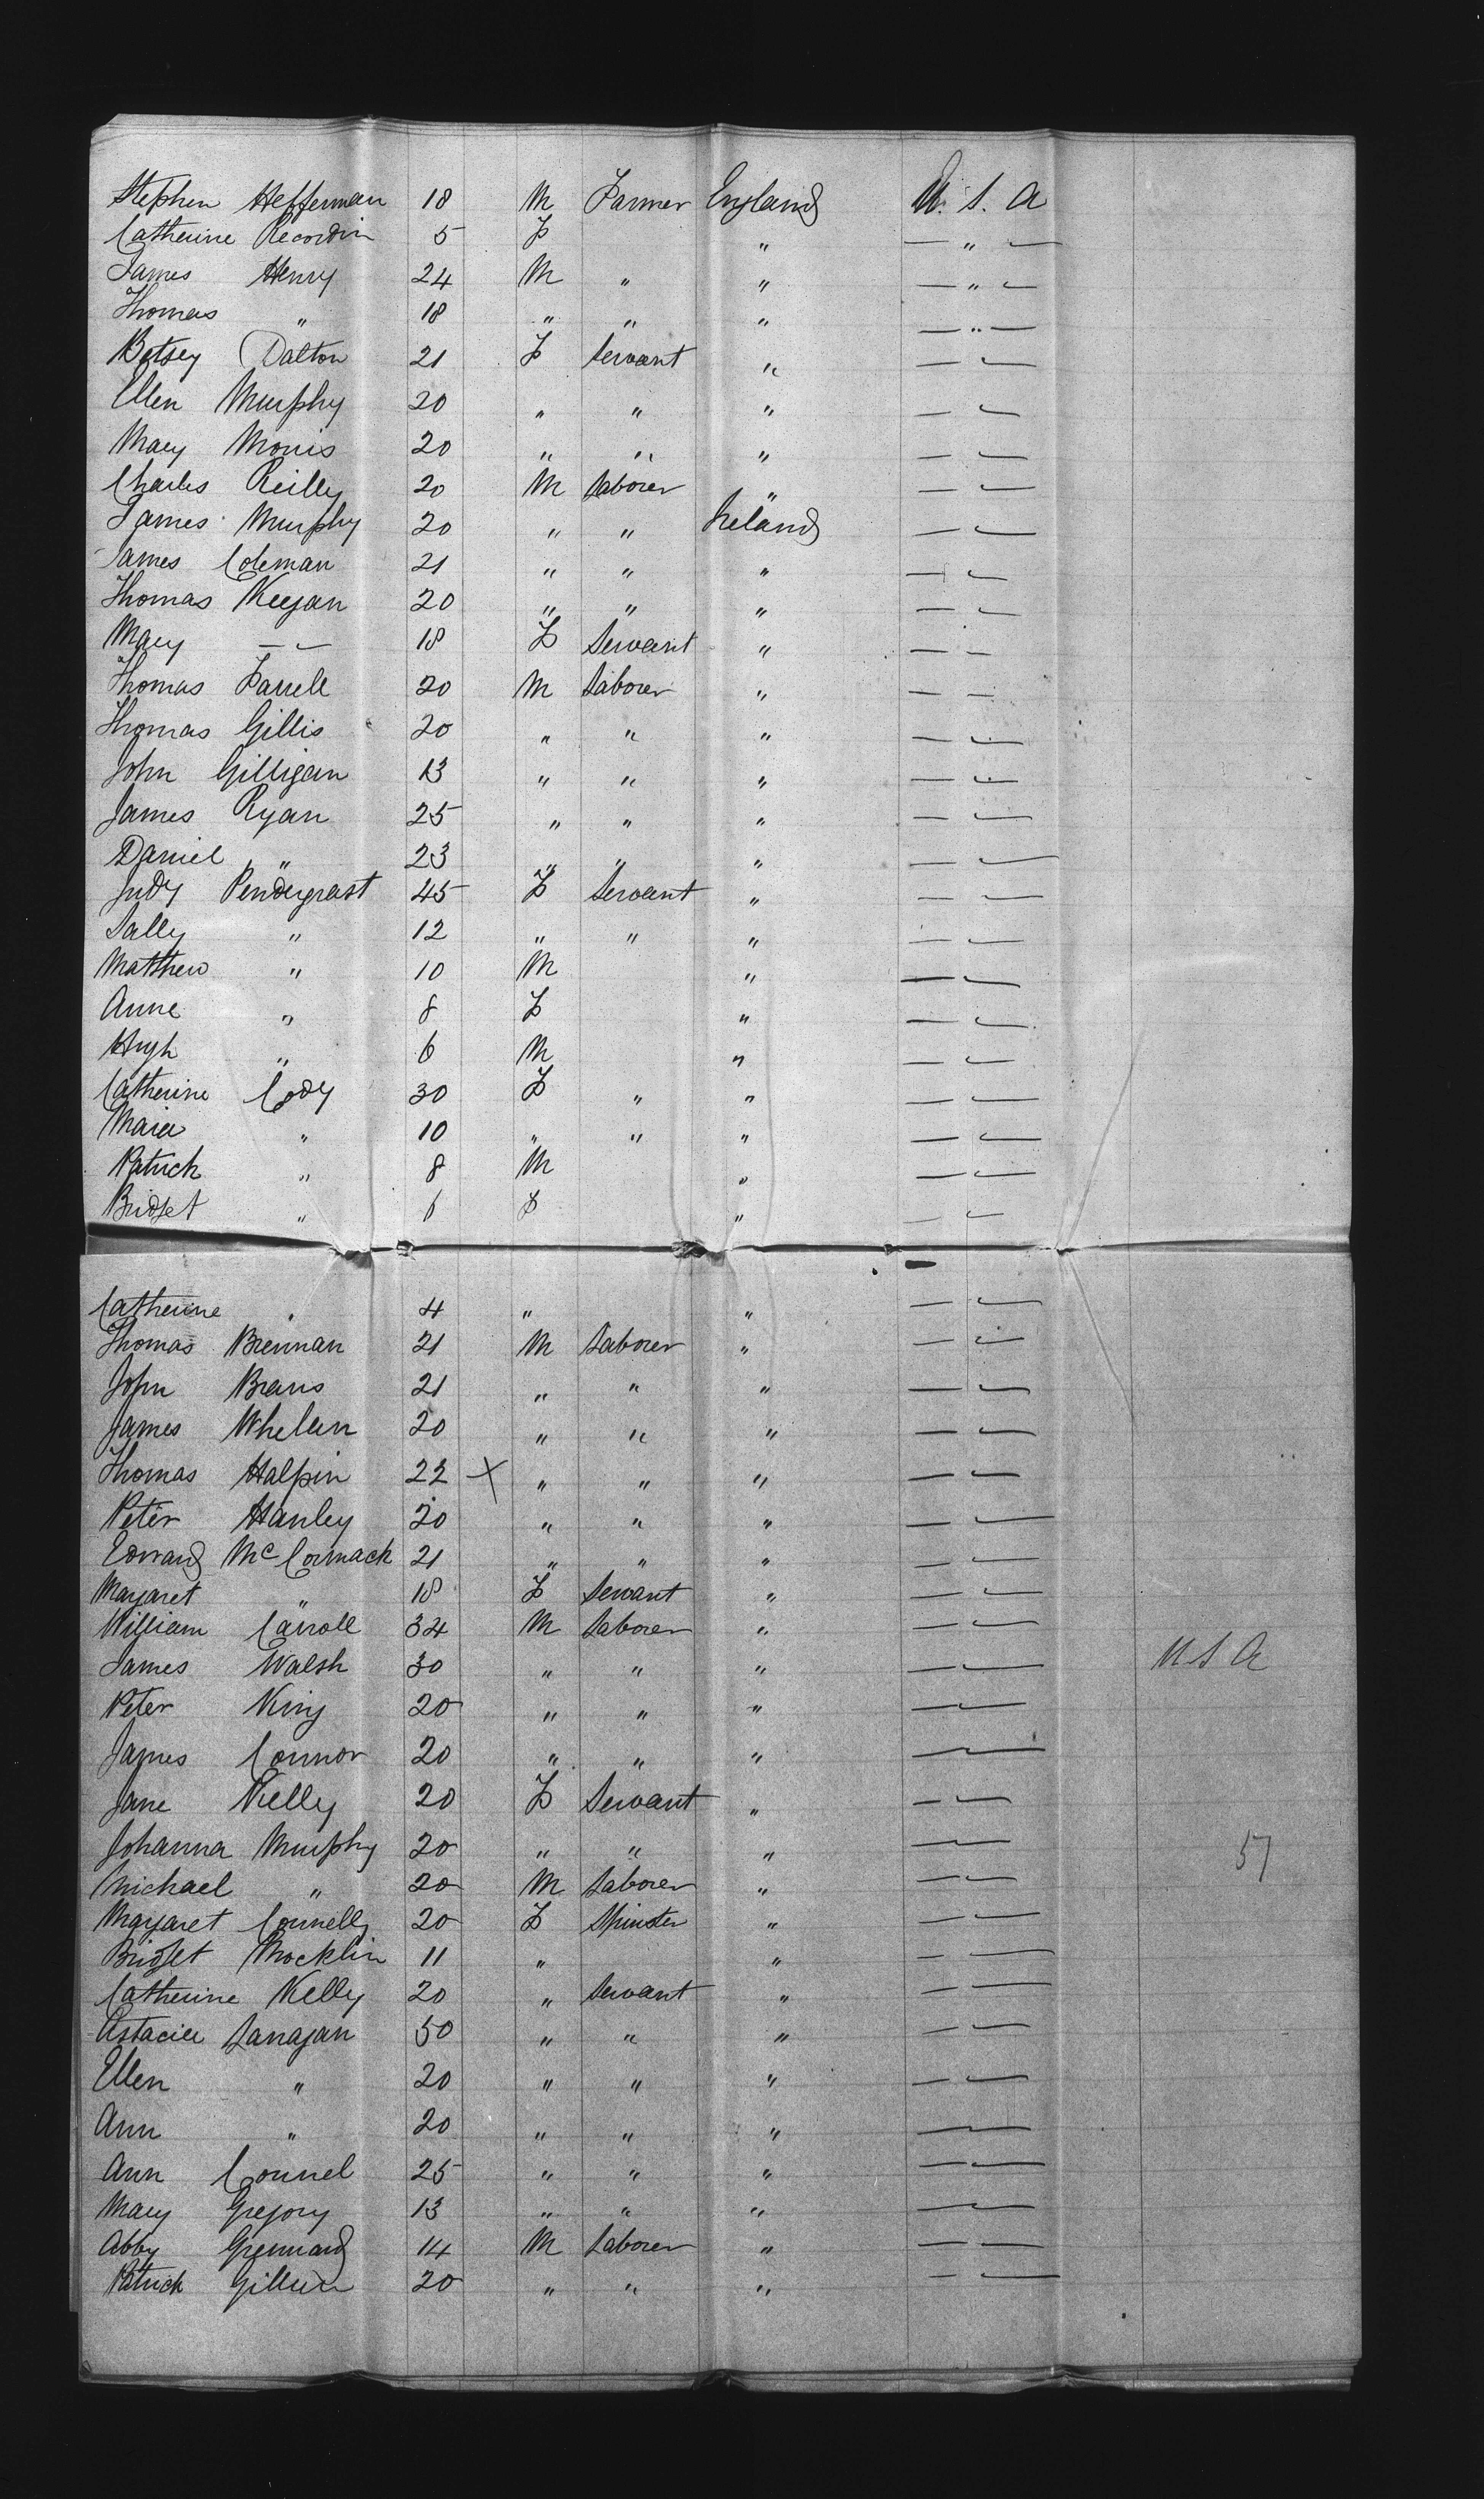 Stephen Heffernan 18 M Farmer England U. S. A
Catherine 5 F " — " —
James Henry 24 M " " — " —
Thomas " 18 " " " — " —
Betsey Dalton 21 F Servant " — —
Ellen Murphy 20 " " " — —
Mary Morris 20 " " " — —
Charles Reilly 20 M Laborer " — —
James Murphy 20 " " Ireland — —
James Coleman 21 " " " — —
Thomas Keegan 20 " " " — —
Mary — — 18 F Servant " — —
Thomas Farrell 20 M Laborer " — —
Thomas Gillis 20 " " " — —
John Gilligan 13 " " " — —
James Ryan 25 " " " — —
Daniel " 23 " " " — —
Judy Pendergrast 45 F Servant " — —
Sally " 12 " " " — —
Matthew " 10 M " — —
Anne " 8 F " — —
Hugh " 6 M " — —
Catherine Cody 30 F " " — —
Maria " 10 " " " — —
Patrick " 8 M " — —
Bridget " 6 F " — —
Catherine " 4 " " — —
Thomas Brennan 21 M Laborer " — —
John 21 " " " — —
James Whelan 20 " " " — —
Thomas Halpin 22 X " " " — —
Peter Hanley 20 " " " — —
Edward McCormack 21 " " " — —
Margaret " 18 F Servant " — —
William Carroll 34 M Laborer " — —
James Walsh 30 " " " — — U S A
Peter King 20 " " " — —
James Connor 20 " " " — —
Jane Kelly 20 F Servant " — —
Johanna Murphy 20 " " " — — 57
Michael " 20 M Laborer " — —
Margaret Connelly 20 F Spinster " — —
Bridget Mocklin 11 " " — —
Catherine Kelly 20 " Servant " — —
Lanagan 50 " " " — —
Ellen " 20 " " " — —
Ann " 20 " " " — —
Ann Connel 25 " " " — —
Mary Gregory 13 " " " — —
Abby 14 M Laborer " — —
Patrick 20 " " " — —